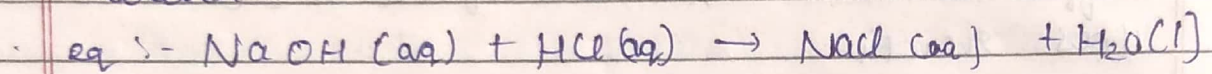 eg :- NaOH (aq) + HCl (aq) → NaCl (aq) + H₂O (l)